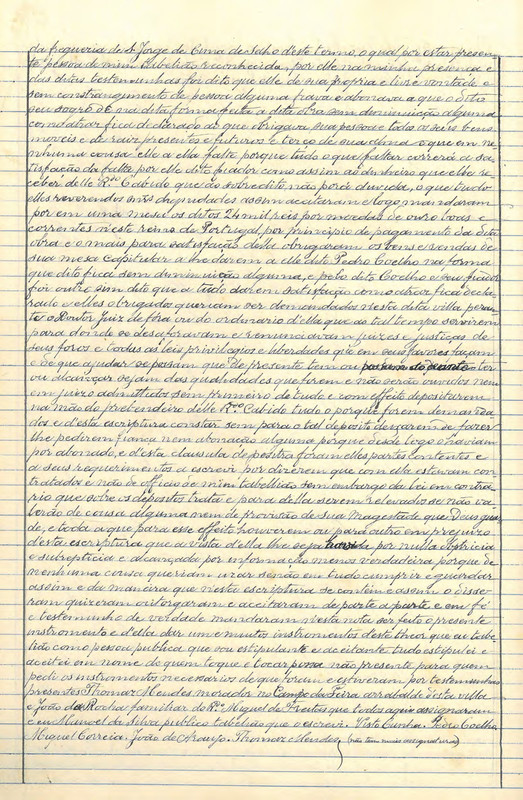 da freguezia de S. Jorge de Cima de Selho d'este termo, o qual por estar presen-
te pessoa de mim tabelião reconhecida, por elle na minha presença e
das ditas testemunhas foi dito que elle de sua propria e livre vontade e
sem constrangimento de pessoa alguma fiava e abonava a que o dito
seu sogro dê na dita forma feita a dita obra sem diminuição alguma
como atraz fica declarado ao que obrigava sua pessoa e todos os seus bens
moveis e de raiz presentes e futuros e terço de sua alma o que em ne-
nhuma cousa elle a ella falte porque tudo o que faltar correrá a sa-
tisfação da falta por elle dito fiador como assim ao dinheiro que elle re-
ceber delle Rdo Cabido que ao sobredito não porá duvida, o que tudo
elles reverendos snrs dignidades assim aceitaram e logo mandaram
por em uma mesa os ditos 24 mil reis por moedas de ouro boas e
correntes n'este reino de Portugal por principio de pagamento da dita
obra e o mais para satisfação delle obrigaram os bens e rendas de
sua mesa capitular a lhe darem a elle dito Pedro Coelho na forma
que dito fica sem diminuição alguma, e pelo dito Coelho e seu fiador
foi outro sim dito que a tudo darem satisfação como atraz fica decla-
rado e elles obrigados queriam ser demandados nesta dita villa peran-
te o Doutor Juiz de fora ou do ordinario d'ella que ao tal tempo servirem
para donde se desaforavam e renunciavam juizes e justiças de
seus foros e todas as leis privilegios e liberdades que em seus favores façam
e de que ajudar se possam que de presente tem ou ao diante ter
ou alcançar sejam das qualidades que forem e não serão ouvidos nem
em juizo admittidos sem primeiro de tudo e com effeito depositarem
na mão do prebendeiro delle Rdo Cabido tudo o porque forem demanda-
dos e d'esta escriptura constar sem para o tal deposito deixarem de fazer
lhe pedirem fiança nem abonação alguma porque desde logo o haviam
por abonado, e d'esta clausula depositra foram elles partes contentes e
a seus requerimentos a escrevi por dizerem que com elle estavam con-
tratados e não de officio de mim tabellião sem embargo da lei em contra-
rio que sobre os depositos trata e para delle serem relevados se não va-
lerão de cousa alguma nem de provisão de sua Magestade que Deus guar-
de, e toda a que para esse effeito houverem ou para outro em prejuizo
d'esta escriptura que a vista d'ella lhe seja havida por nulla obrticia
e subrepticia e alcançada por informação menos verdadeira porque de
nenhuma cousa queriam usar senão em tudo cumprir e guardar
assim e da maneira que nesta escriptura se contem e assim o disse-
ram quizeram outorgaram e aceitaram de parte a parte e em fé
e testemunho de verdade mandaram nesta nota ser feito o presente
instromento e d'ella dar um e muitos instromentos deste theor que eu tabe-
lião como pessoa publica que sou estipulante e aceitante tudo estipulei e
aceitei em nome de quem toque e tocar possa não presente para quem
pedi os instromentos necessarios de que foram e estiveram por testemunhas
presentes Thomaz Mendes morador no Campo da Feira arrabalde d'esta villa
e João da Rocha familiar do Rdo Miguel de Freitas que todos aqui assignaram
e eu Manoel da Silva publico tabelião que o escrevi. Visto Cunha. Pedro Coelho.
Miguel Correia. João de Araujo. Thomaz Mendes. (não tem mais assignaturas)